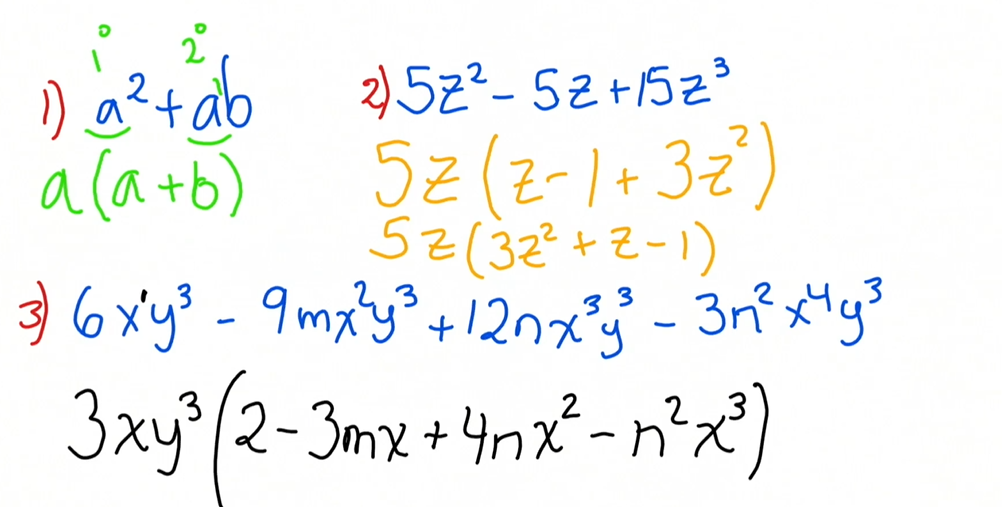 1° 2°
1) a² + a¹b
a(a+b)
2) 5z² - 5z + 15z³
5z(z - 1 + 3z²)
5z(3z² + z - 1)
3) 6x¹y³ - 9mx²y³ + 12nx³y³ - 3n²x⁴y³
3xy³(2 - 3mx + 4nx² - n²x³)